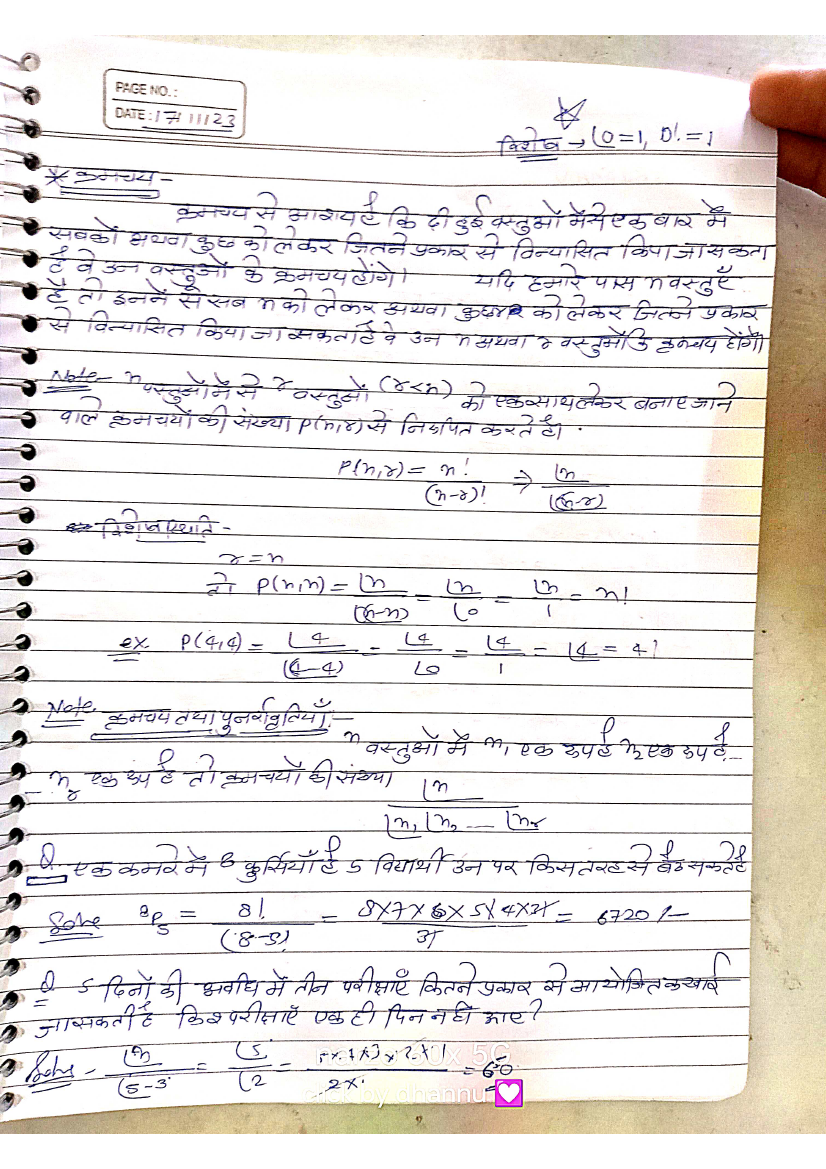 PAGE NO.:
DATE: 17/11/23
विशेष → ⌊0=1, 0!=1
* क्रमचय -
क्रमचय से आशय है कि दी हुई वस्तुओं में से एक बार में
सबको अथवा कुछ को लेकर जितने प्रकार से विन्यासित किया जा सकता
है वे उन वस्तुओं के क्रमचय होंगे। यदि हमारे पास n वस्तुएँ
है तो इनमें से सब n को लेकर अथवा कुछ r को लेकर जितने प्रकार
से विन्यासित किया जा सकता है वे उन n अथवा r वस्तुओं के क्रमचय होंगे।
Note- n वस्तुओं में से r वस्तुओं (r<n) को एक साथ लेकर बनाए जाने
वाले क्रमचयों की संख्या P(n,r) से निरूपित करते है।
P(n,r) = n!/(n-r)! ⇒ ⌊n/⌊(n-r)
विशेष स्थिति -
r = n
तो P(n,n) = ⌊n/⌊(n-n) = ⌊n/⌊0 = ⌊n/1 = n!
ex. P(4,4) = ⌊4/⌊(4-4) = ⌊4/⌊0 = ⌊4/1 = ⌊4 = 4!
Note. क्रमचय तथा पुनरावृतियाँ -
n वस्तुओं में n₁ एक रूप है n₂ एक रूप है --
-- nᵣ एक रूप है तो क्रमचयों की संख्या
⌊n/⌊n₁ ⌊n₂ --- ⌊nᵣ
Q. एक कमरे में 8 कुर्सियाँ है 5 विद्यार्थी उन पर किस तरह से बैठ सकते है
Solve ⁸P₅ = 8!/(8-5)! = 8×7×6×5×4×3!/3! = 6720
Q 5 दिनों की अवधि में तीन परीक्षाएँ कितने प्रकार से आयोजित करवाई
जा सकती है कि परीक्षाएँ एक ही दिन नहीं आए?
Solve - ⌊n/⌊5-3 = ⌊5/⌊2 = 5×4×3×2×1/2×1 = 60